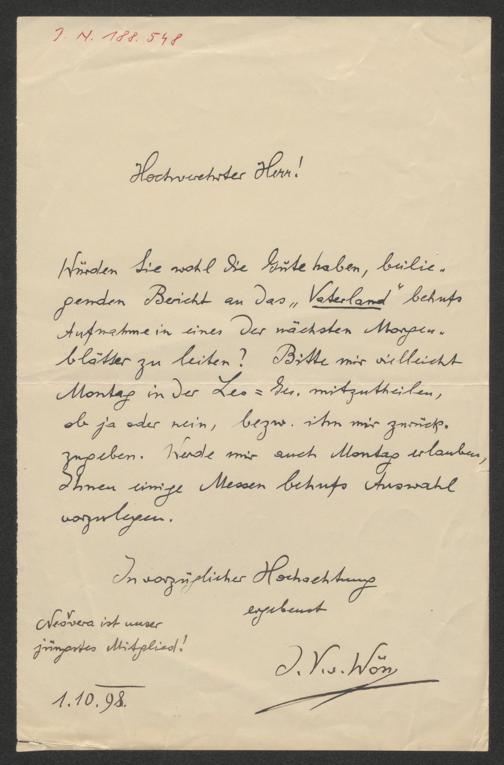 J. N. 188.548
Hochverehrter Herr!
Würden Sie wohl die Güte haben, beilie-
genden Bericht an das „Vaterland" behufs
Aufnahme in eines der nächsten Morgen-
blätter zu leiten? Bitte mir vielleicht
Montag in der Leo = Ges. mitzutheilen,
ob ja oder nein, bezw. ihn mir zurück-
zugeben. Werde mir auch Montag erlauben,
Ihnen einige Messen behufs Auswahl
vorzulegen.
In vorzüglicher Hochachtung
ergebenst
Neövera ist unser
jüngstes Mitglied!
J. V. v. Wöss
1.10.98.